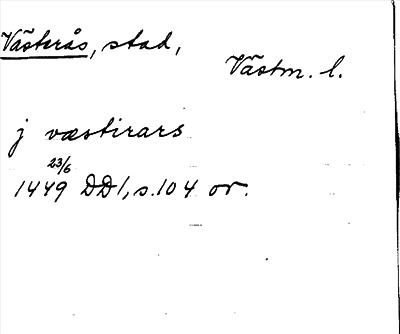 Västerås, stad,
Västm. l.
j væstirars
23/6
1449 DD1, s. 104 or.